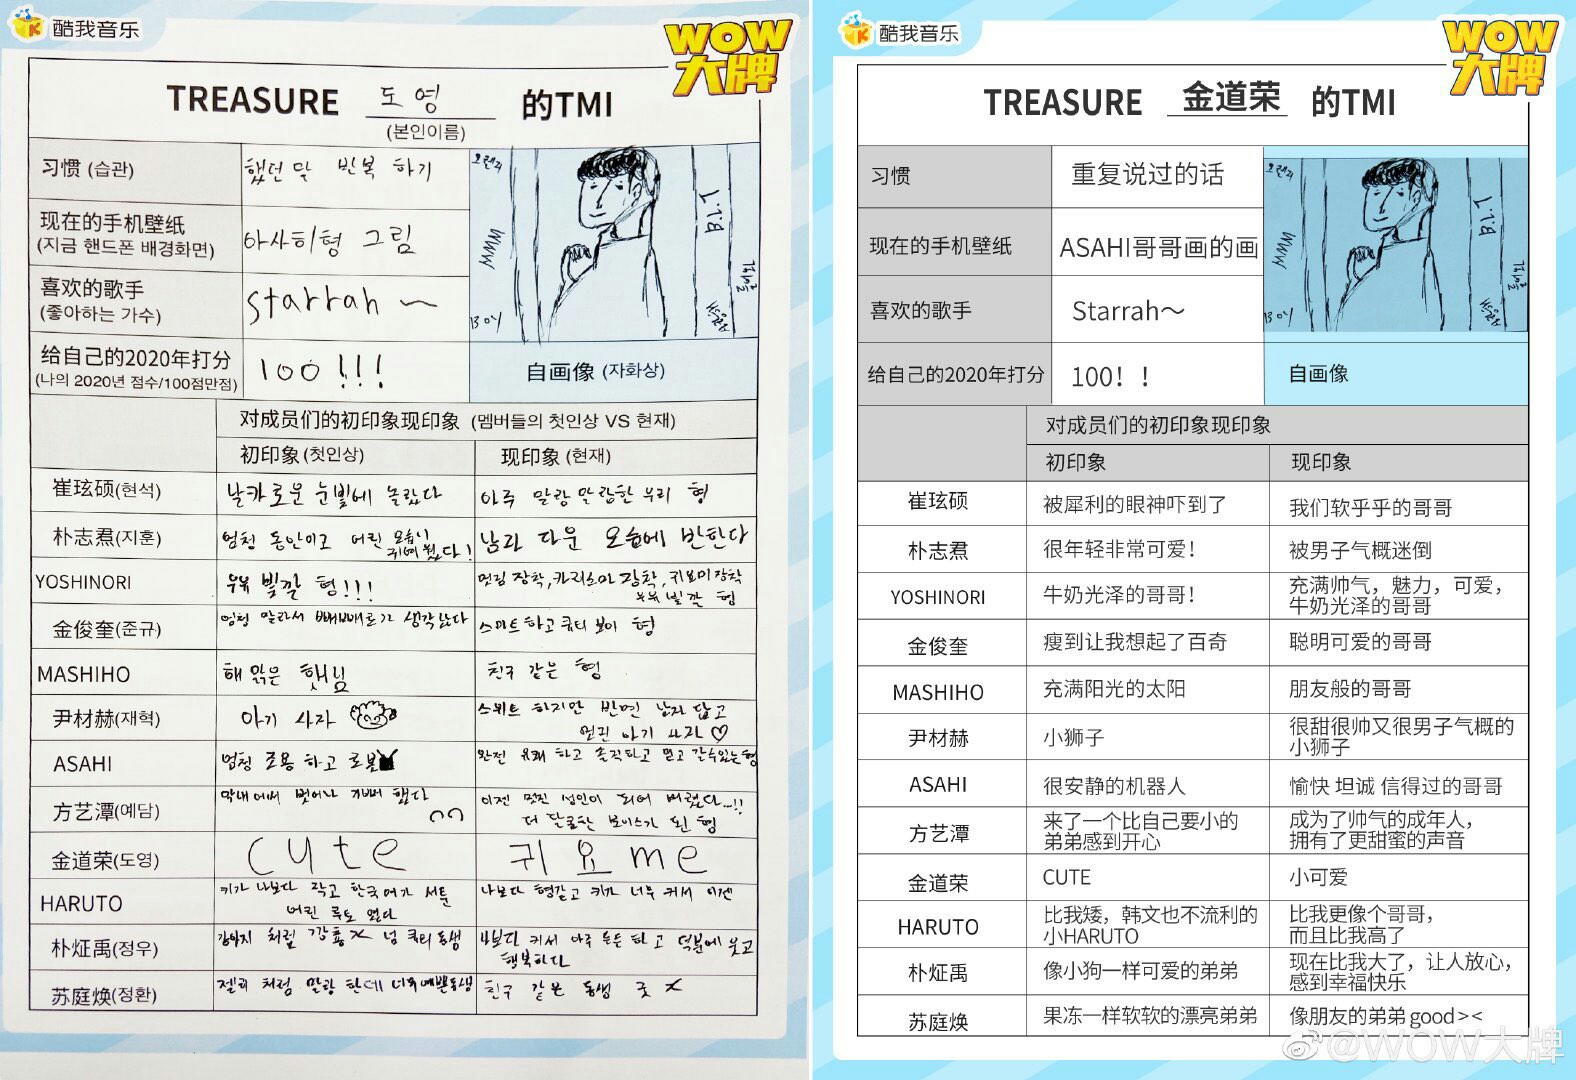 酷我音乐
WOW
大牌
TREASURE 도영 的TMI
(본인이름)
习惯 (습관)
했던 말 반복 하기
现在的手机壁纸
(지금 핸드폰 배경화면)
아사히형 그림
喜欢的歌手
(좋아하는 가수)
Starrah ~
给自己的2020年打分
(나의 2020년 점수/100점만점)
100!!!
오렌지
WWW
B.L.T
13 04
自画像 (자화상)
对成员们的初印象现印象 (멤버들의 첫인상 VS 현재)
初印象(첫인상)
现印象(현재)
崔玹硕(현석)
날카로운 눈빛에 놀랐다
아주 말랑말랑한 우리 형
朴志焄(지훈)
엄청 동안이고 어린 모습이
귀여웠다!
남자 다운 모습에 반한다
YOSHINORI
우유 빛깔 형!!!
멋짐 장착, 카리스마 장착, 귀요미 장착
우유 빛깔 형
金俊奎(준규)
엄청 말라서 빼빼로가 생각났다
스마트하고 큐티 보이 형
MASHIHO
해 맑은 햇님
친구 같은 형
尹材赫(재혁)
아기 사자
스위트 하지만 반면 남자 답고
멋진 아기 사자♡
ASAHI
엄청 조용 하고 로봇
완전 유쾌 하고 솔직하고 믿고 갈수있는 형
方艺潭(예담)
막내에서 벗어나 기뻐 했다
이젠 멋진 성인이 되어 버렸다...!!
더 달콤한 보이스가 된 형
金道荣(도영)
cute
귀요me
HARUTO
키가 나보다 작고 한국어가 서툰
어린 루토 였다
나보다 형같고 키가 너무 커서 이젠
朴炡禹(정우)
강아지 처럼 깜홍 넘 큐티 동생
나보다 커서 아주 든든하고 덕분에 웃고
행복하다
苏庭焕(정환)
젤리 처럼 말랑 한데 너무 예쁜동생
친구 같은 동생 굿
酷我音乐
WOW
大牌
TREASURE 金道荣 的TMI
习惯
重复说过的话
现在的手机壁纸
ASAHI哥哥画的画
喜欢的歌手
Starrah～
给自己的2020年打分
100！！
오렌지
WWW
B.L.T
13 04
自画像
对成员们的初印象现印象
初印象
现印象
崔玹硕
被犀利的眼神吓到了
我们软乎乎的哥哥
朴志焄
很年轻非常可爱！
被男子气概迷倒
YOSHINORI
牛奶光泽的哥哥！
充满帅气，魅力，可爱，
牛奶光泽的哥哥
金俊奎
瘦到让我想起了百奇
聪明可爱的哥哥
MASHIHO
充满阳光的太阳
朋友般的哥哥
尹材赫
小狮子
很甜很帅又很男子气概的
小狮子
ASAHI
很安静的机器人
愉快 坦诚 信得过的哥哥
方艺潭
来了一个比自己要小的
弟弟感到开心
成为了帅气的成年人，
拥有了更甜蜜的声音
金道荣
CUTE
小可爱
HARUTO
比我矮，韩文也不流利的
小HARUTO
比我更像个哥哥，
而且比我高了
朴炡禹
像小狗一样可爱的弟弟
现在比我大了，让人放心，
感到幸福快乐
苏庭焕
果冻一样软软的漂亮弟弟
像朋友的弟弟good><
@WOW大牌